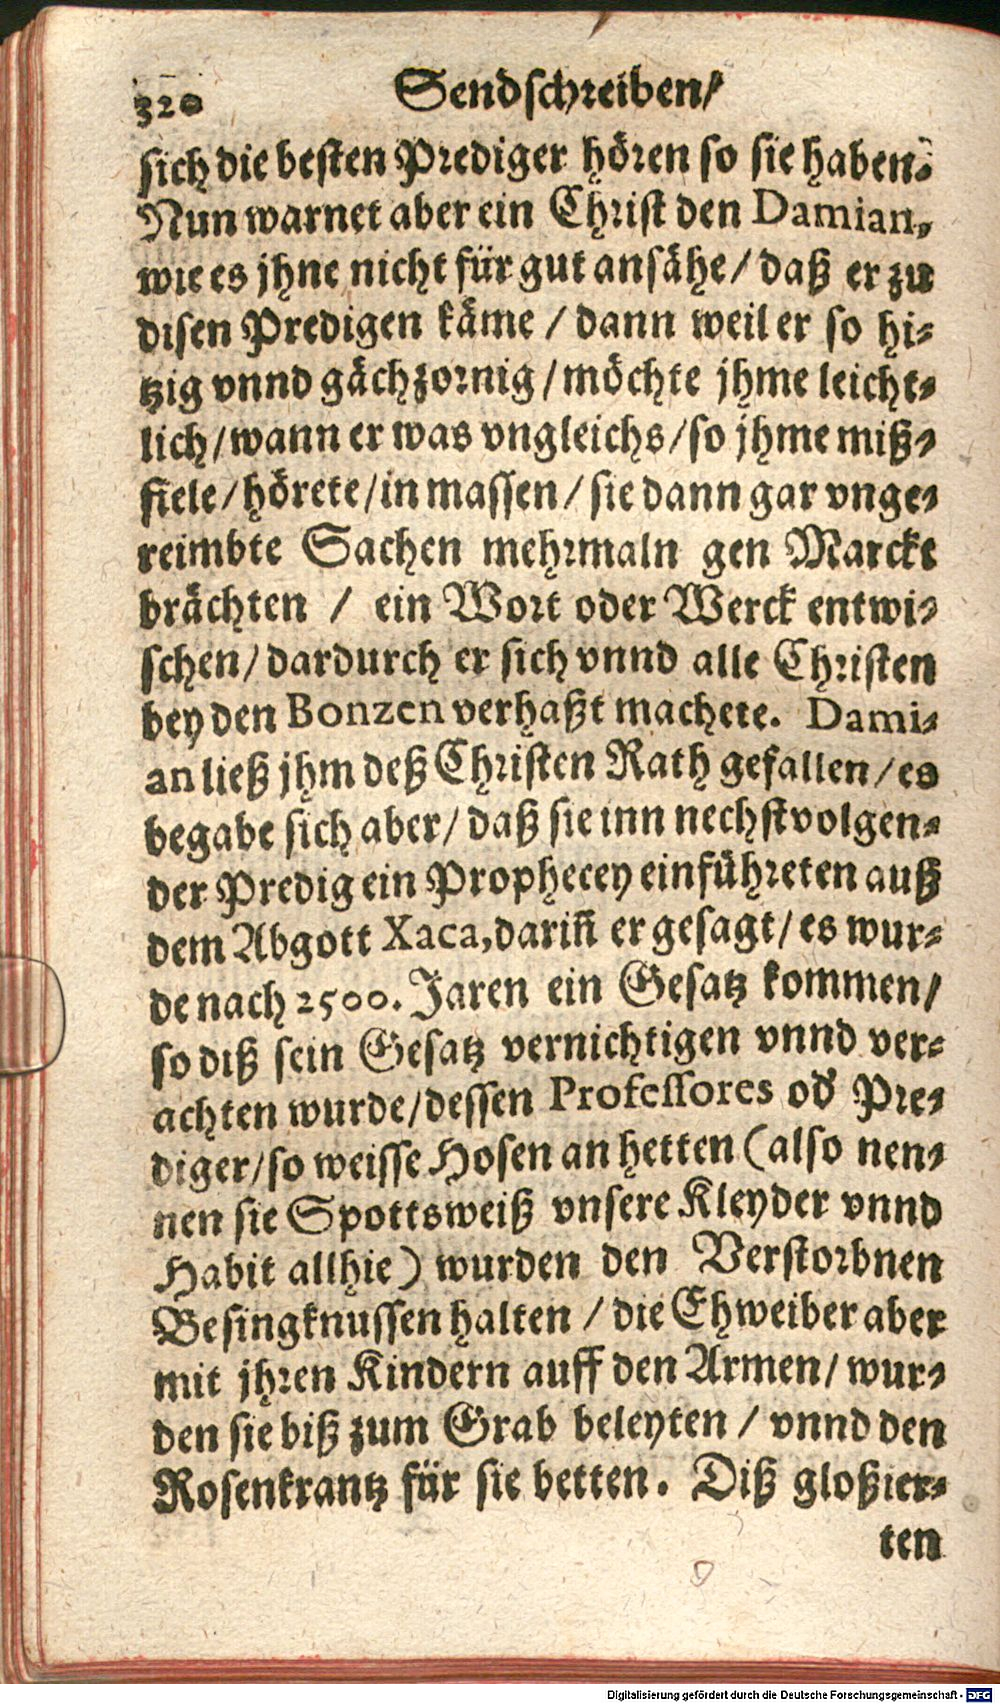 320 Sendschreiben/
sich die besten Prediger hören so sie haben.
Nun warnet aber ein Christ den Damian,
wie es jhne nicht für gut ansähe/ daß er zu
disen Predigen käme / dann weil er so hi-
tzig vnnd gächzornig / möchte jhme leicht-
lich / wann er was vngleichs / so jhme miß-
fiele / hörete / in massen / sie dann gar vnge-
reimbte Sachen mehrmaln gen Marckt
brächten / ein Wort oder Werck entwi-
schen / dardurch er sich vnnd alle Christen
bey den Bonzen verhaßt machete. Dami-
an ließ jhm deß Christen Rath gefallen / es
begabe sich aber / daß sie inn nechstvolgen-
der Predig ein Prophecey einführeten auß
dem Abgott Xaca, dariñ er gesagt / es wur-
de nach 2500. Jaren ein Gesatz kommen /
so diß sein Gesatz vernichtigen vnnd ver-
achten wurde / dessen Professores od' Pre-
diger / so weisse Hosen an hetten (also nen-
nen sie Spottsweiß vnsere Kleyder vnnd
Habit allhie) wurden den Verstorbnen
Besingknussen halten / die Ehweiber aber
mit jhren Kindern auff den Armen / wur-
den sie biß zum Grab beleyten / vnnd den
Rosenkrantz für sie betten. Diß gloßier-
ten
Digitalisierung gefördert durch die Deutsche Forschungsgemeinschaft - DFG